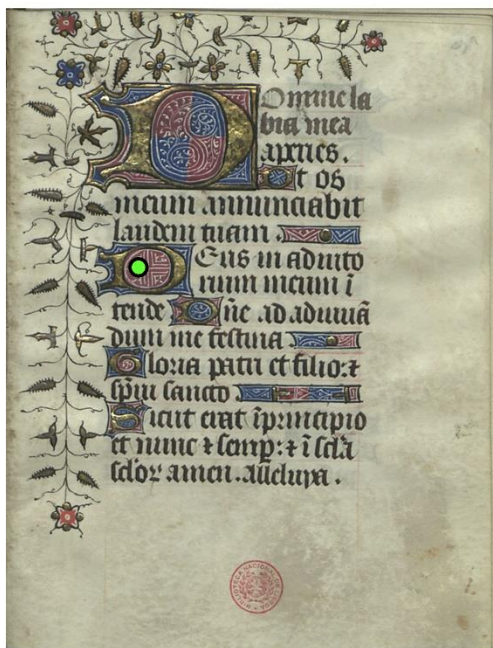 Domine la
bia mea
aperies.
Et os
meum annunciabit
laudem tuam.
Deus in adiuto
rium meum ī
tende Dñe ad adiuuā
dum me festina
Gloria patri et filio: ⁊
sp̄ui sancto
Sicut erat īprincipio
et nunc ⁊ semp̲: ⁊ ī scl̄a
scl̄oꝝ amen. alleluya.
BIBLIOTECA NACIONAL DE LISBOA